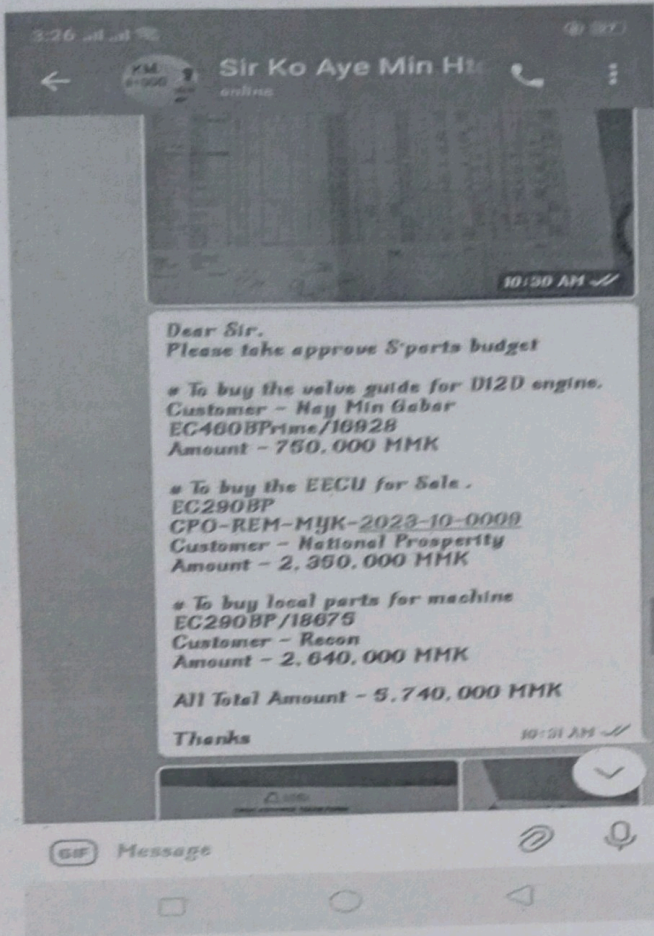 3:26
Sir Ko Aye Min Ht
online
10:30 AM
Dear Sir.
Please take approve S'parts budget
# To buy the valve guide for D12D engine.
Customer - Nay Min Gabar
EC460BPrime/16928
Amount - 750,000 MMK
# To buy the EECU for Sale .
EC290BP
CPO-REM-MYK-2023-10-0009
Customer - National Prosperity
Amount - 2,350,000 MMK
# To buy local parts for machine
EC290BP/18675
Customer - Recon
Amount - 2,640,000 MMK
All Total Amount - 5,740,000 MMK
Thanks
10:31 AM
GIF Message